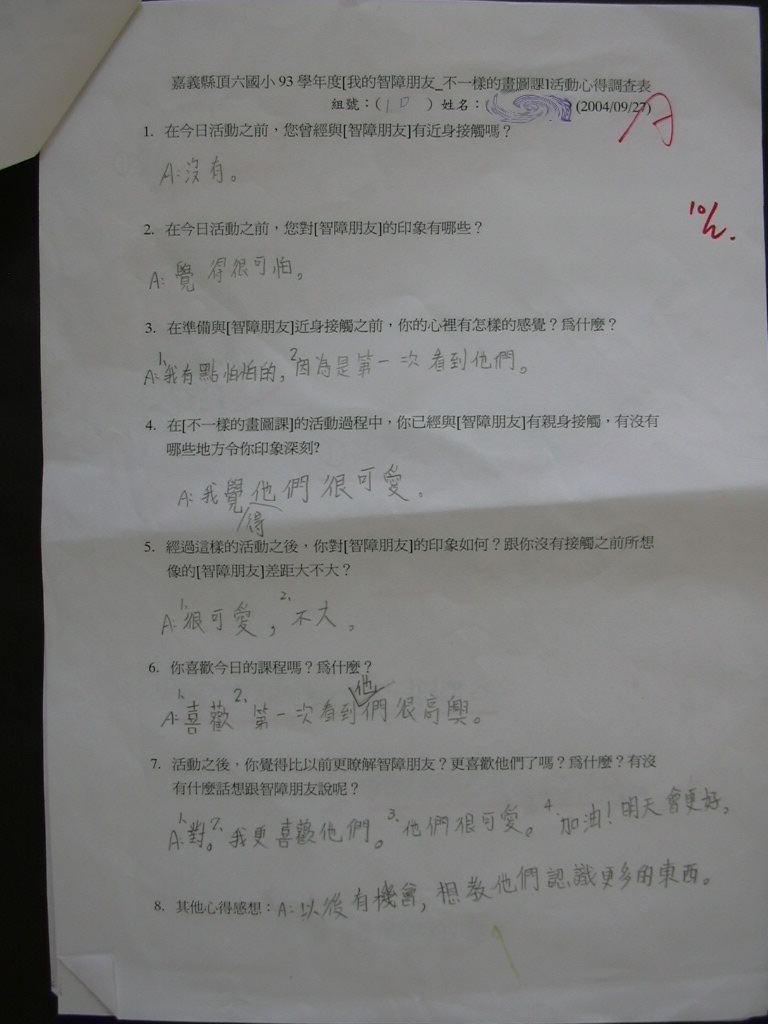 嘉義縣頂六國小93學年度[我的智障朋友_不一樣的畫圖課]活動心得調查表
組號：(10) 姓名：( (2004/09/27)
A
1. 在今日活動之前，您曾經與[智障朋友]有近身接觸嗎？
A:沒有。
10/2.
2. 在今日活動之前，您對[智障朋友]的印象有哪些？
A:覺得很可怕。
3. 在準備與[智障朋友]近身接觸之前，你的心裡有怎樣的感覺？為什麼？
A:1.我有點怕怕的，2.因為是第一次看到他們。
4. 在[不一樣的畫圖課]的活動過程中，你已經與[智障朋友]有親身接觸，有沒有
哪些地方令你印象深刻?
A:我覺得他們很可愛。
5. 經過這樣的活動之後，你對[智障朋友]的印象如何？跟你沒有接觸之前所想
像的[智障朋友]差距大不大？
A:1.很可愛，2.不大。
6. 你喜歡今日的課程嗎？為什麼？
A:1.喜歡2.第一次看到他們很高興。
7. 活動之後，你覺得比以前更瞭解智障朋友？更喜歡他們了嗎？為什麼？有沒
有什麼話想跟智障朋友說呢？
A:1.對。2.我更喜歡他們。3.他們很可愛。4.加油！明天會更好。
8. 其他心得感想：A:以後有機會，想教他們認識更多的東西。